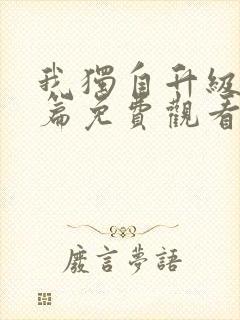 我獨自升級
篇免費觀看
廢言夢語